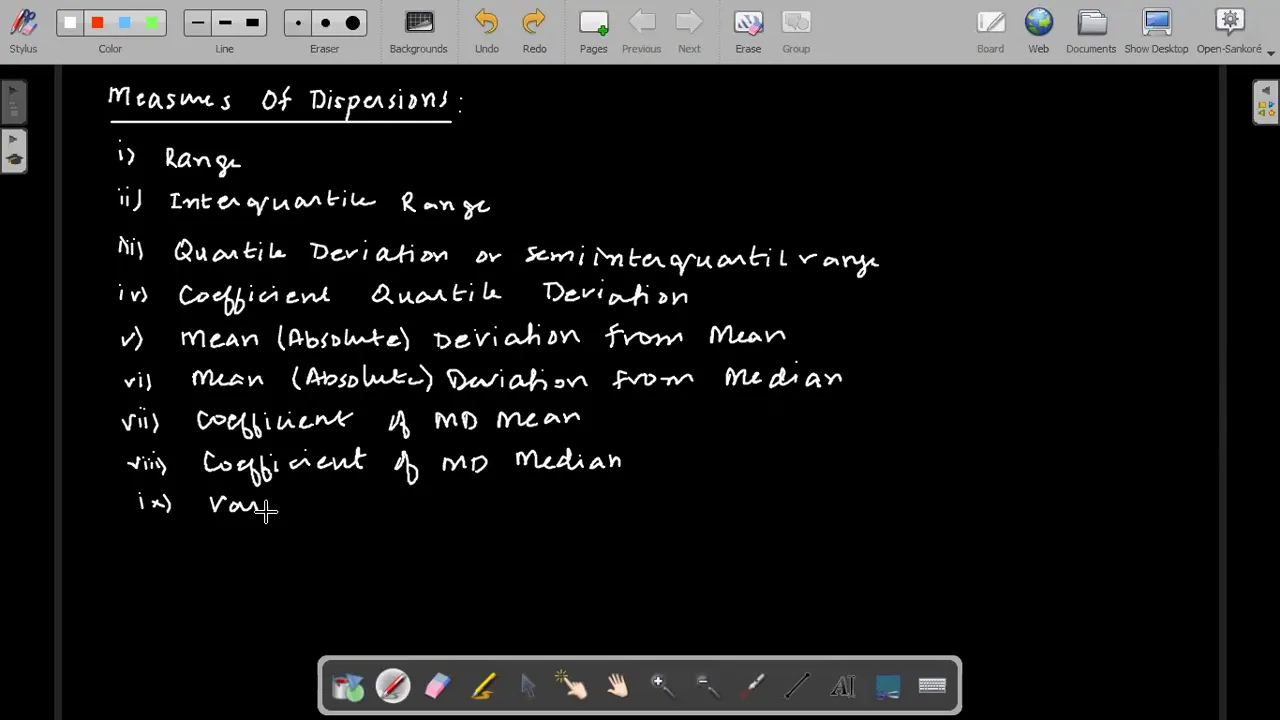 Stylus
Color
Line
Eraser
Backgrounds
Undo
Redo
Pages
Previous
Next
Erase
Group
Board
Web
Documents
Show Desktop
Open-Sankoré
Measures Of Dispersions:
i) Range
ii) Interquartile Range
iii) Quartile Deviation or semiinterquartil range
iv) Coefficient Quartile Deviation
v) Mean (Absolute) Deviation from Mean
vi) Mean (Absolute) Deviation from Median
vii) Coefficient of MD Mean
viii) Coefficient of MD Median
ix) Var
AI